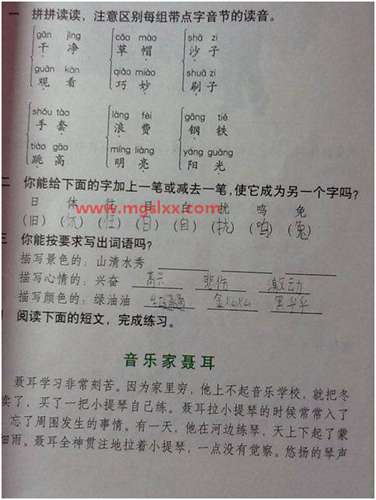 一 拼拼读读，注意区别每组带点字音节的读音。
gān jìng cǎo mào shā zi
干净 草帽 沙子
guān kàn qiǎo miào shuā zi
观看 巧妙 刷子
shǒu tào làng fèi gāng tiě
手套 浪费 钢铁
tiào gāo míng liàng yáng guāng
跳高 明亮 阳光
二 你能给下面的字加上一笔或减去一笔，使它成为另一个字吗？
日 体 自 扰 鸣 免
www.mgslxx.com
(旧) (自) (扰) (鸣) (兔)
三 你能按要求写出词语吗？
描写景色的：山清水秀
描写心情的：兴奋 悲伤 激动
描写颜色的：绿油油
阅读下面的短文，完成练习。
音乐家聂耳
聂耳学习非常刻苦。因为家里穷，他上不起音乐学校，就把冬
卖了，买了一把小提琴自己练。聂耳拉小提琴的时候常常入了
忘了周围发生的事情。有一天，他在河边练琴，天上下起了蒙
细雨。聂耳全神贯注地拉着小提琴，一点没有觉察。悠扬的琴声